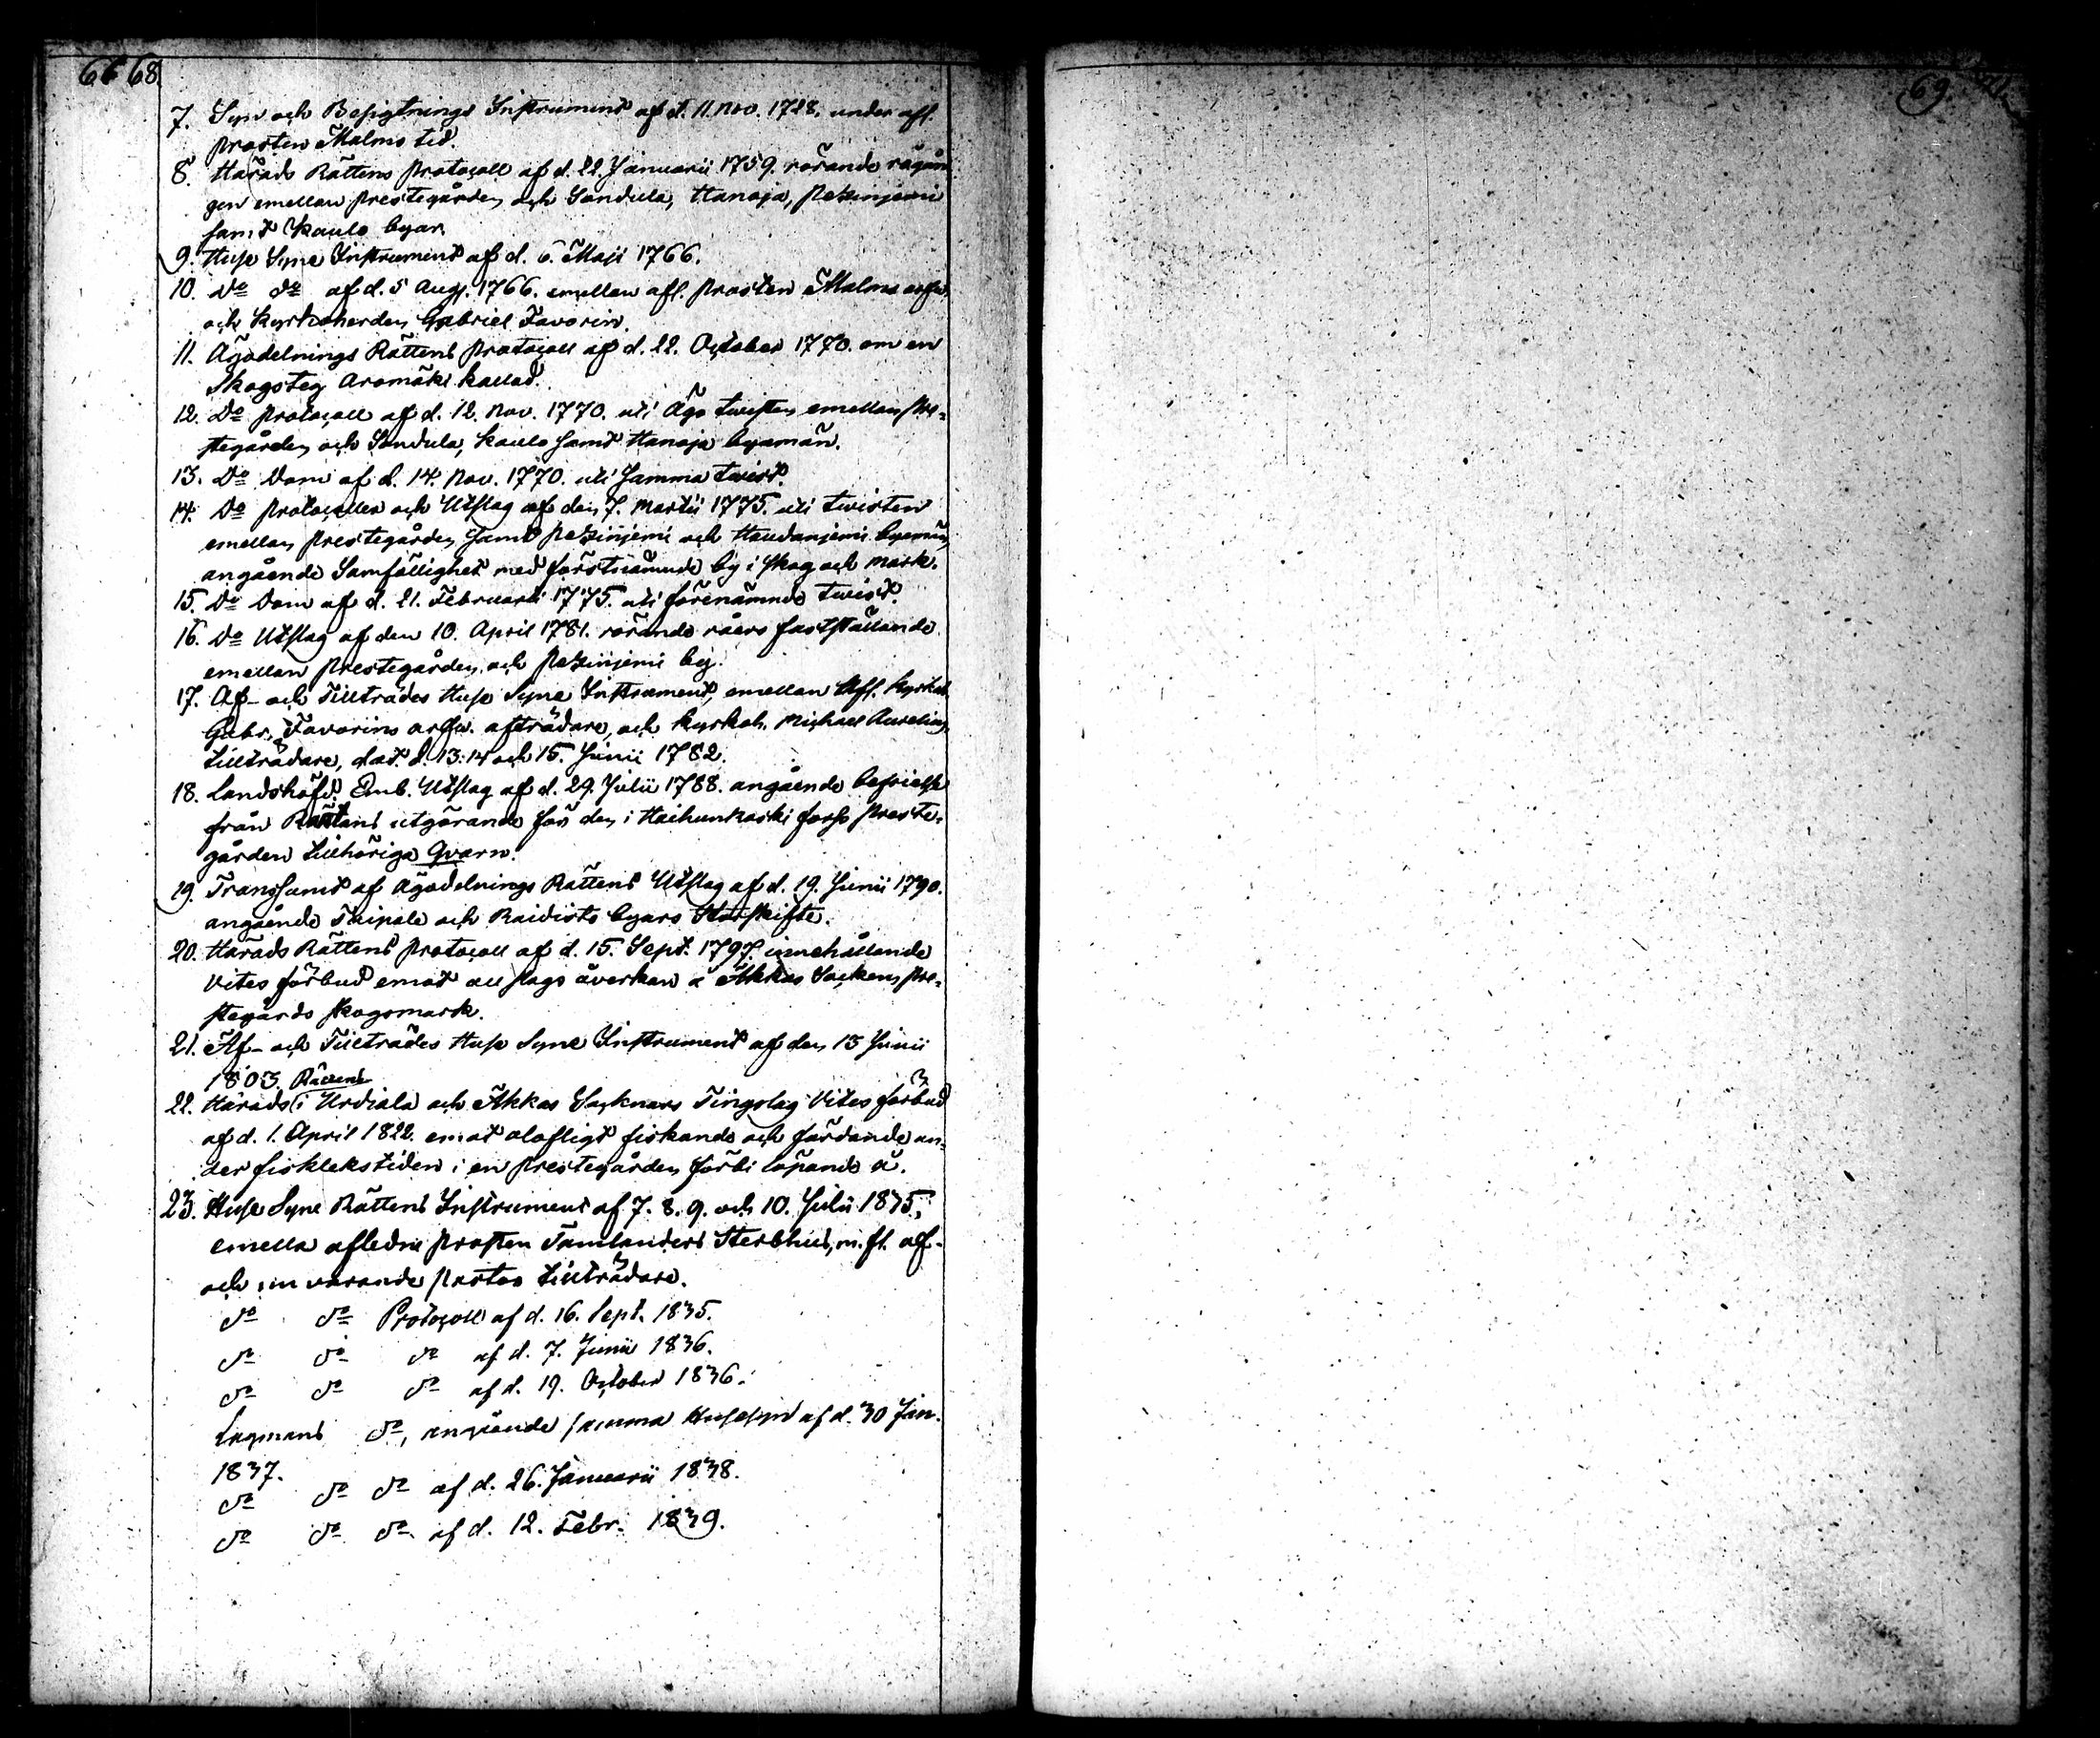 66 68
69.
7. Syn och Besigtnings Instrument af d. 11. Nov. 1728. under afl.
prosten Malms tid.
8. Härads Rättens Protocoll af d. 22. Januarii 1759. rörande rågån-
gen emellan prestegården och Sondula, Hanaja, Pezinjemi
samt Kaulo byar.
9. Huse Syne Instrument af d. 6. Maji 1766.
10. Do do af d. 5 Aug. 1766. emellan afl. prosten Malms arfw.
och Kyrkoherden Gabriel Favorin.
11. Ägodelnings Rättens Protocoll af d. 22. October 1770. om en
Skogsteg Aromäki kallad.
12. Do protocoll af d. 12. Nov. 1770. uti Ägo twisten emellan pre-
stegården och Sondula, Kaulo samt Hanaja byamän.
13. Do Dom af d. 14. Nov. 1770. uti samma twist.
14. Do protocoller och Utslag af den 7. Martii 1775. uti twisten
emellan prestegården samt Pezinjemi och Haudanjemi byamän,
angående Samfällighet med förstnämnde by i skog och mark.
15. Do Dom af d. 21. Februarii 1775. uti förenämnde twist.
16. Do Utslag af den 10. April 1781. rörande råers fastställande
emellan prestegården och Pezinjemi by.
17. Af- och Tillträdes Huse Syne Instrument, emellan Afl. Kyrkoh.
Gabr. Favorins arfw. afträdare, och Kyrkoh. Michael Aurelius,
tillträdare, dat. d. 13. 14 och 15. Junii 1782.
18. Landshöfd. Emb. Utslag af d. 29. Julii 1788. angående befrielse
från Räntans utgörande för den i Haihunkoski forss preste-
gården tillhöriga Qvarn.
19. Transsumt af Ägodelnings Rättens Utslag af d. 19. Junii 1790.
angående Taipale och Raidisto byars Storskifte.
20. Härads Rättens protocoll af d. 15. Sept. 1797. innehållande
Vites förbud emot all slags åverkan å Akkas Sockens pre-
stegårds skogsmark.
21. Af- och Tillträdes Huse Syne Instrument af den 13 Junii
1803. Rättens
22. Härads (i Urdiala och Akkas Socknars Tingslag Vites förbud
af d. 1. April 1822. emot olofligt fiskande och fördande un-
der fisklekstiden i en prestegården förbi löpande å.
23. Huse Syne Rättens Instrument af 7. 8. 9. och 10. Julii 1835,
emella afledne prosten Tamlanders Sterbhus, m. fl. af-
och nu varande pastor tillträdare.
do do Protocoll af d. 16. Sept. 1835.
do do do af d. 7. Junii 1836.
do do do af d. 19. October 1836.
Lagmans do, angående samma Husesyn af d. 30 Jan.
1837.
do do do af d. 26. Januarii 1838.
do do do af d. 12. Febr. 1839.